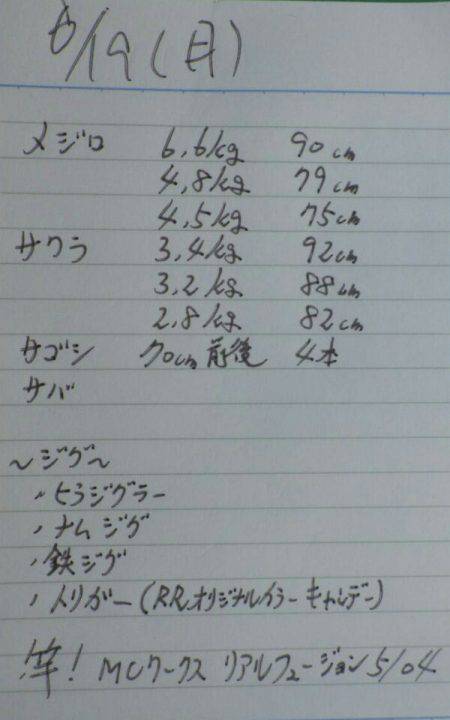 6/19(月)
メジロ 6,6kg 90cm
4,8kg 79cm
4,5kg 75cm
サワラ 3,4kg 92cm
3,2kg 88cm
2,8kg 82cm
サゴシ 70cm前後 4本
サバ
〜ジグ〜
・ヒラジグラー
・ナムジグ
・鉄ジグ
・トリガー(RRオリジナルカラー キャンデー)
竿! MCワークス リアルフュージョン 5/04